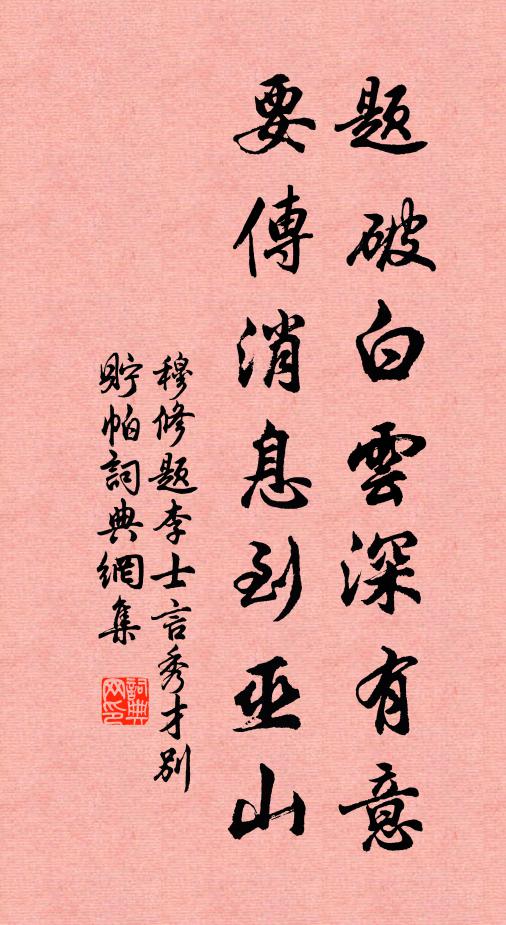 題破白雲深有意
要傳消息到巫山
穆修題李士言秀才別
貯帕詞典網集
詞典网印